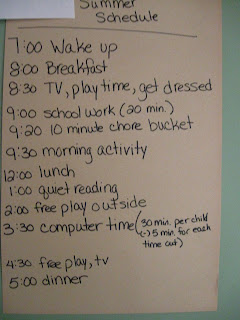 Summer
Schedule
7:00 Wake up
8:00 Breakfast
8:30 TV, playtime, get dressed
9:00 school work (20 min.)
9:20 10 minute chore bucket
9:30 morning activity
12:00 lunch
1:00 quiet reading
2:00 free play outside
3:30 computer time (30 min. per child
(-) 5 min. for each
time out)
4:30 free play, tv
5:00 dinner